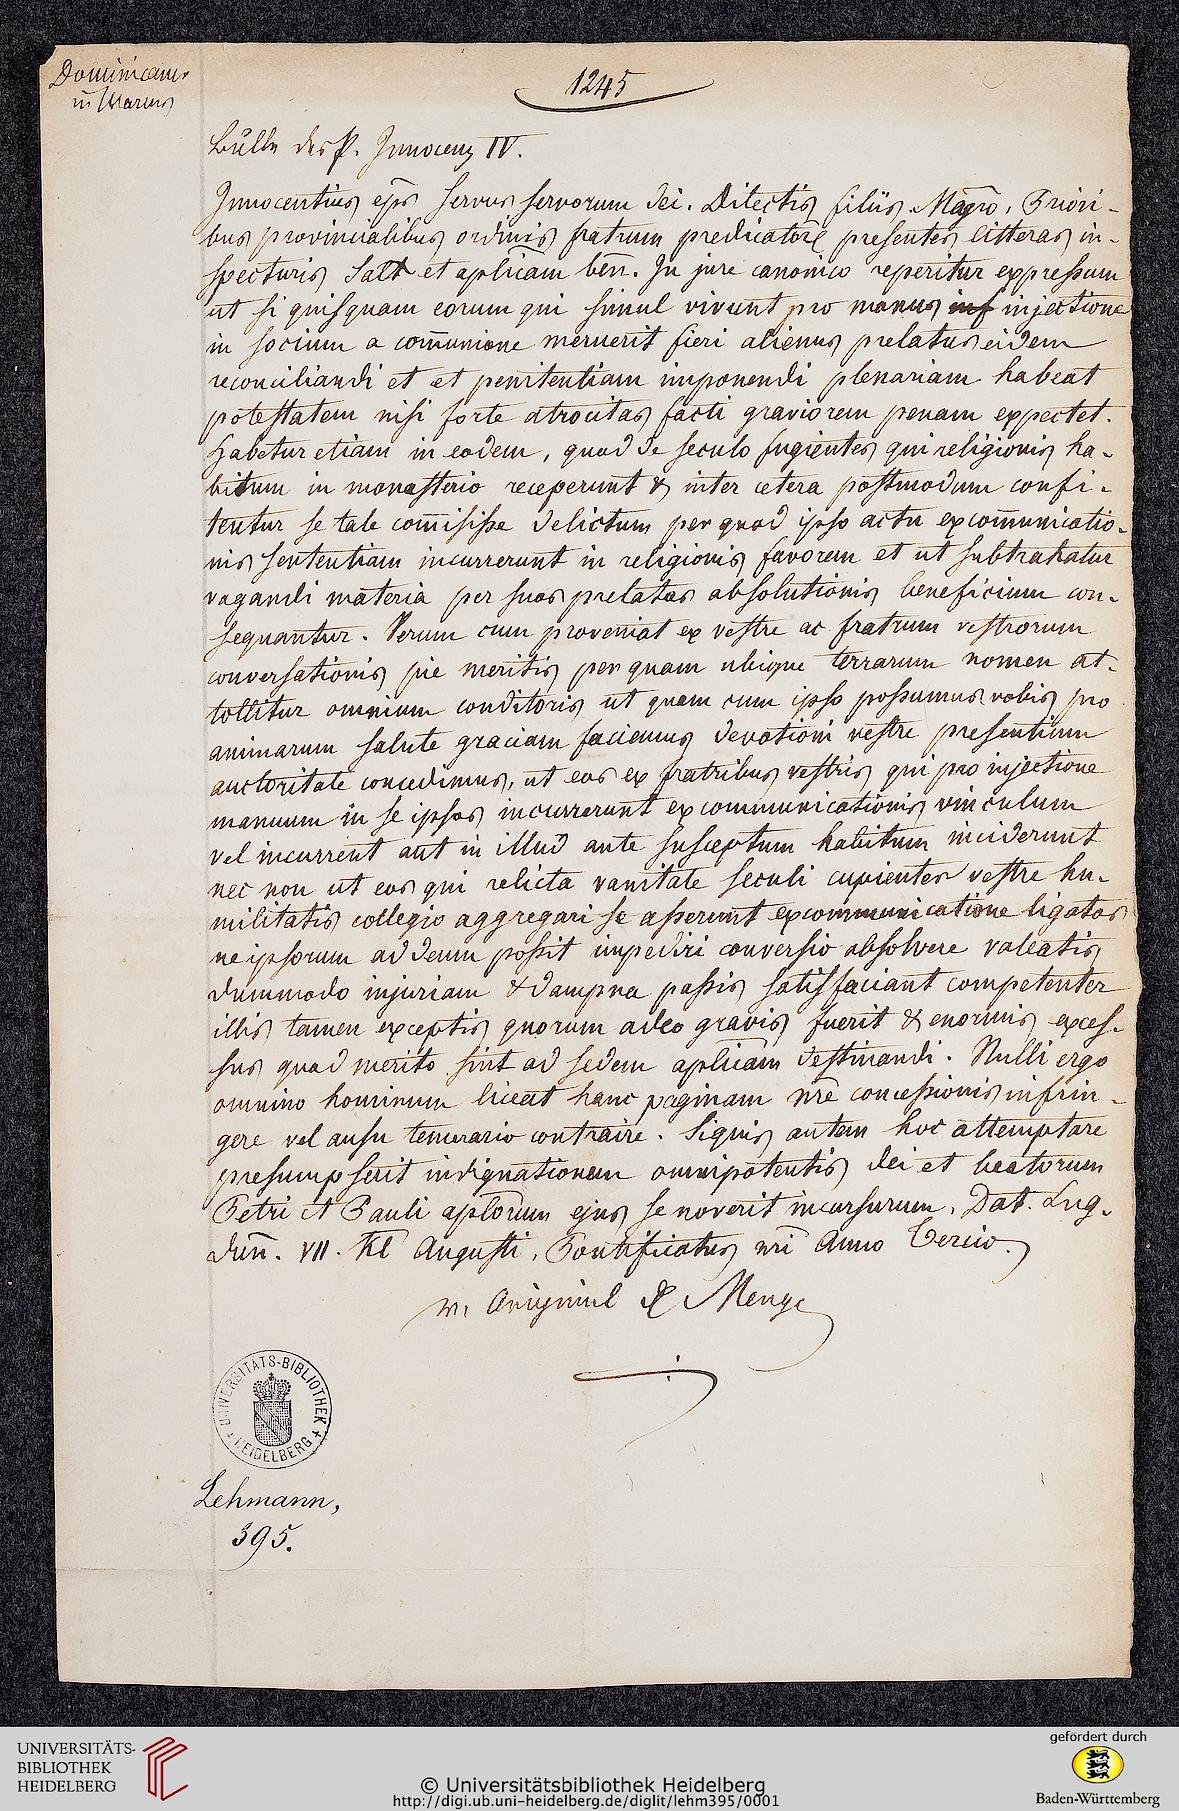 Dominicaner
in Worms
1245
Bulle des P. Innocenz IV.
Innocentius eps servus servorum dei. Dilectis filiis Magro, Priori-
bus provincialibus ordinis fratrum predicator presentes litteras in-
specturis Salt et aplicam ben. In jure canonico reperitur expressum
ut si quisquam eorum qui simul vivunt pro manus inf injectione
in socium a com̄unione meruerit fieri alienus prelatus eidem
reconciliandi et et penitentiam imponendi plenariam habeat
potestatem nisi forte atrocitas facti graviorem penam expectet.
Habetur etiam in eodem, quod de seculo fugientes qui religionis ha-
bitum in monasterio receperunt & inter cetera postmodum confi-
tentur se tale com̄isisse delictum per quod ipso actu excom̄unicatio-
nis sententiam incurrerunt in religionis favorem et ut subtrahatur
vagandi materia per suos prelatos absolutionis beneficium con-
sequantur. Verum cum proveniat ex vestre ac fratrum vestrorum
conversationis pie meritis per quam ubique terrarum nomen at-
tollitur omnium conditoris ut quam cum ipso possumus vobis pro
animarum salute graciam faciemus devotioni vestre presentium
auctoritate concedimus, ut eos ex fratribus vestris qui pro injectione
manuum in se ipsos incurrerunt excommunicationis vinculum
vel incurrent aut in illud ante susceptum habitum inciderunt
nec non ut eos qui relicta vanitate seculi cupientes vestre hu-
militatis collegio aggregari se asserunt excommunicatione ligatos
ne ipsorum ad deum possit impediri conversio absolvere valeatis
dummodo injuriam & dampna passis satisfaciant competenter
illis tamen exceptis quorum adeo gravis fuerit & enormis exces-
sus quod merito sint ad sedem aplicam destinandi. Nulli ergo
omnino hominum liceat hanc paginam nrē concessionis infrin-
gere vel ausu temerario contraire. Siquis autem hoc attemptare
presumpserit indignationem omnipotentis dei et beatorum
Petri et Pauli aplorum ejus se noverit incursurum. Dat. Lug-
dun̄. VII. Kl Augusti, Pontificatus nri Anno Tercio.
v. Original
UNIVERSITÄTS-BIBLIOTHEK
HEIDELBERG
Lehmann,
395.
UNIVERSITÄTS-
BIBLIOTHEK
HEIDELBERG
© Universitätsbibliothek Heidelberg
http://digi.ub.uni-heidelberg.de/diglit/lehm395/0001
gefördert durch
Baden-Württemberg